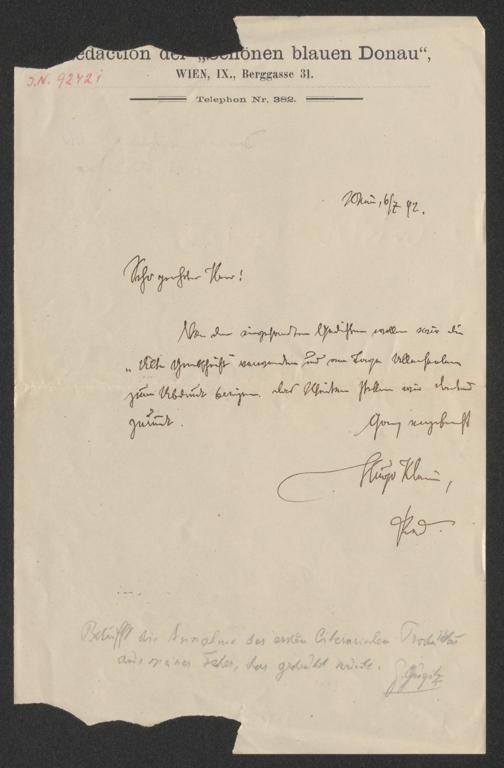 Redaction der „Schönen blauen Donau“,
WIEN, IX., Berggasse 31.
J.N. 92421
Telephon Nr. 382.
Wien, 6/7 92.
Sehr geehrter Herr!
Von den eingesandten Gedichten wollen wir die
„Alte Handschrift“ verwenden und
zum Abdruck bringen. Das Weitere stellen wir dankend
zurück.
Ganz ergebenst
Hugo Klein,
Red.
Betrifft die Annahme des ersten literarischen Produktes
aus meiner Feder, das gedruckt wurde.
G. Gugitz